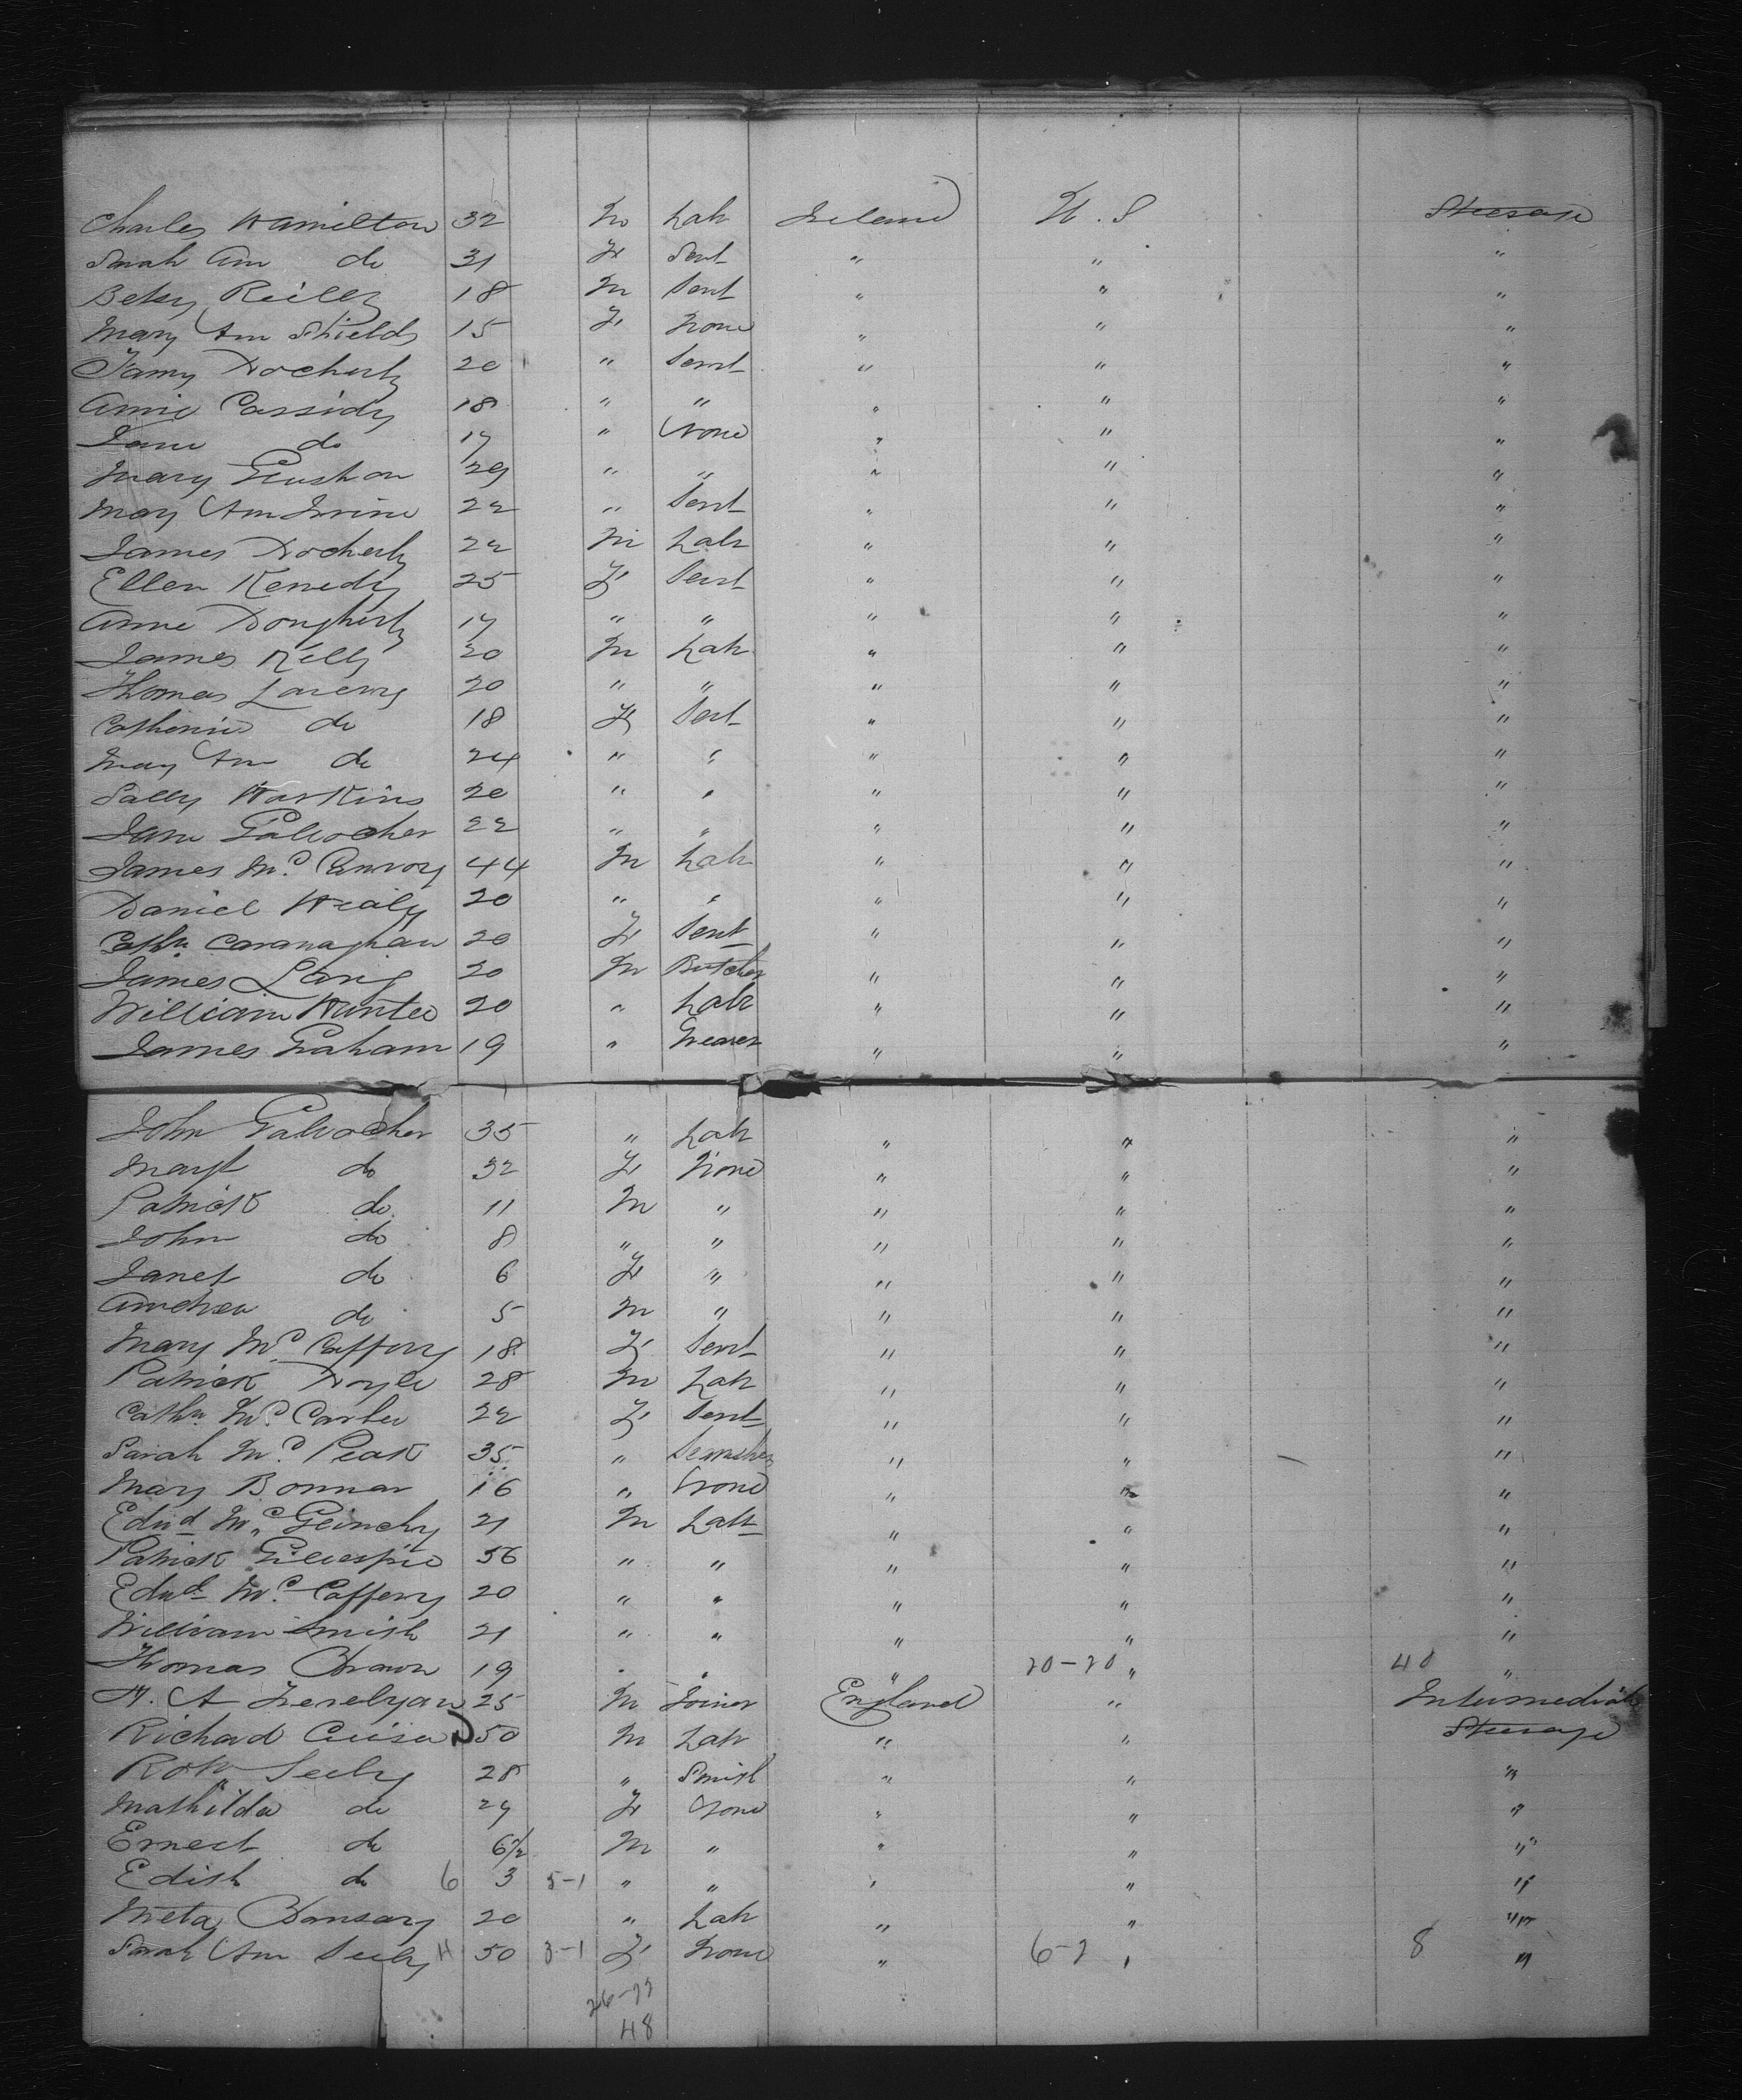 Charles Hamilton 32 M Labr Ireland U.S Steerage
Sarah Ann do 31 F Servt " " "
Betsy Reilly 18 M Servt " " "
Mary Ann Shields 15 F None " " "
Fanny Docherty 20 " Servt " " "
Annie Cassidy 18 " " " " "
Jane do 17 " None " " "
Mary 29 " " " " "
Mary Ann Irvine 22 " Servt " " "
James Docherty 22 M Labr " " "
Ellen Kenedy 25 F Servt " " "
Anne Dougherty 17 " " " " "
James Kelly 20 M Labr " " "
Thomas 20 " " " " "
Catherine do 18 F Servt " " "
Mary Ann do 24 " " " " "
Sally Harkins 20 " " " " "
Jane Gallocher 22 " " " " "
James Mc Convoy 44 M Labr " " "
Daniel Healy 20 " " " " "
Cathn Cavanaghan 20 F Servt " " "
James Lang 20 M Butcher " " "
William Hunter 20 " Labr " " "
James Graham 19 " Weaver " " "
John Gallocher 35 " Labr " " "
Margt do 32 F None " " "
Patrick do 11 M " " " "
John do 8 " " " " "
Janet do 6 F " " " "
Andrew do 5 M " " " "
Mary Mc Caffery 18 F Servt " " "
Patrick Doyle 28 M Labr " " "
Cathn Mc Carter 22 F Servt " " "
Sarah Mc Peak 35 " " " "
Mary Bonnar 16 " None " " "
Edwd Mc Geinchy 21 M Labr " " "
Patrick Gillespie 56 " " " " "
Edwd Mc Caffery 20 " " " " "
William Smith 21 " " " " "
Thomas Brawn 19 " " " 20-20 " 40 "
H. A Trevelyan 25 M Joiner England " Intermediate
Richard 50 M Labr " " Steerage
Robt Seeby 28 " Smith " " "
Mathilda do 27 F None " " "
Ernest do 6/12 M " " " "
Edith do 6 3 5-1 " " " " "
20 " Labr " " "
Sarah Ann Seeby H 50 3-1 F None " 6-2 " 8 "
26-22
48